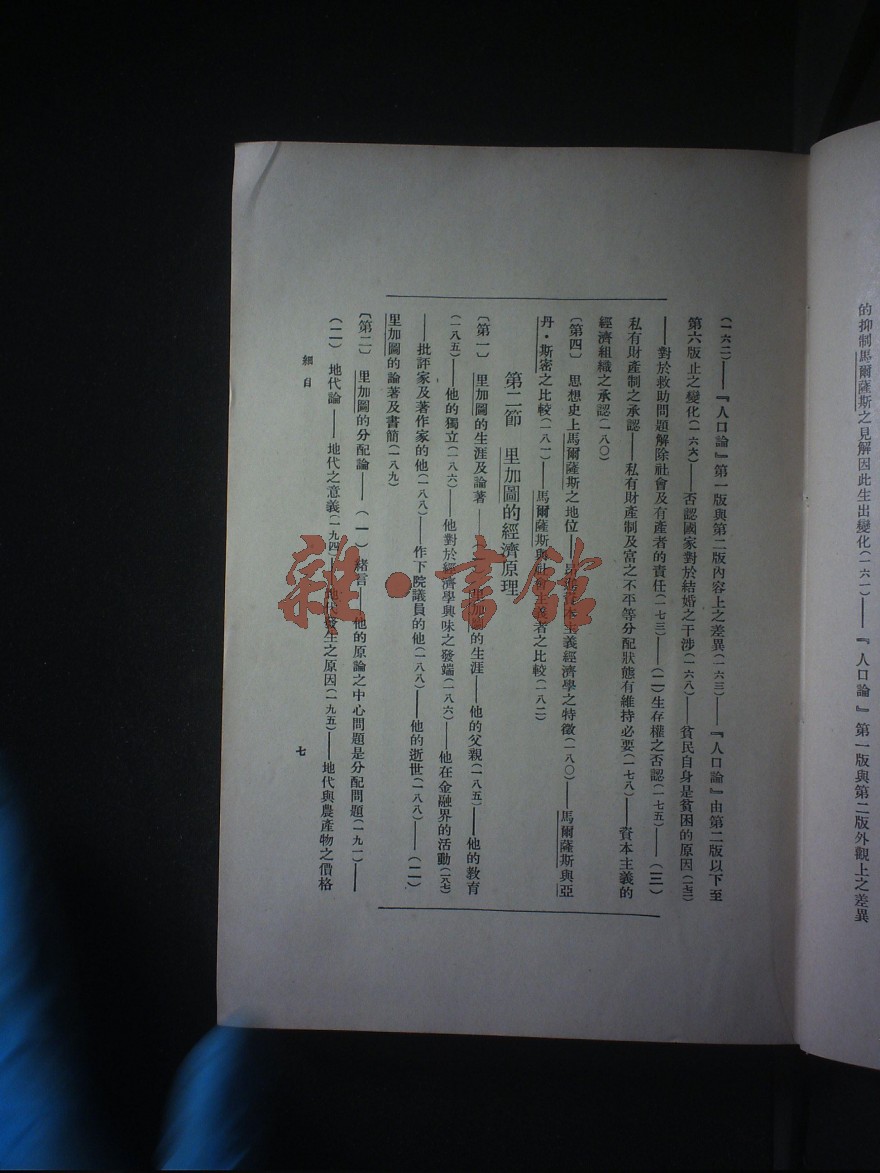 的抑制馬爾薩斯之見解因此生出變化(一六一)——『人口論』第一版與第二版外觀上之差異
(一六二)——『人口論』第一版與第二版內容上之差異(一六三)——『人口論』由第二版以下至
第六版止之變化(一六六)——否認國家對於結婚之干涉(一六八)——貧民自身是貧困的原因(一七二)
——對於救助問題解除社會及有產者的責任(一七三)——(二)生存權之否認(一七五)——(三)
私有財產制之承認——私有財產制及富之不平等分配狀態有維持必要(一七八)——資本主義的
經濟組織之承認(一八〇)
〔第四〕 思想史上馬爾薩斯之地位——資本主義經濟學之特徵(一八〇)——馬爾薩斯與亞
丹・斯密之比較(一八一)——馬爾薩斯與社會主義者之比較(一八二)
第二節 里加圖的經濟原理
〔第一〕 里加圖的生涯及論著——里加圖的生涯——他的父親(一八五)——他的教育
(一八五)——他的獨立(一八六)——他對於經濟學興味之發端(一八六)——他在金融界的活動(一八七)
——批評家及著作家的他(一八八)——作下院議員的他(一八八)——他的逝世(一八八)——(二)
里加圖的論著及書簡(一八九)
〔第二〕 里加圖的分配論——(一)緒言——他的原論之中心問題是分配問題(一九一)——
(二) 地代論——地代之意義(一九四)——地代發生之原因(一九五)——地代與農產物之價格
細目
七
雜・書館